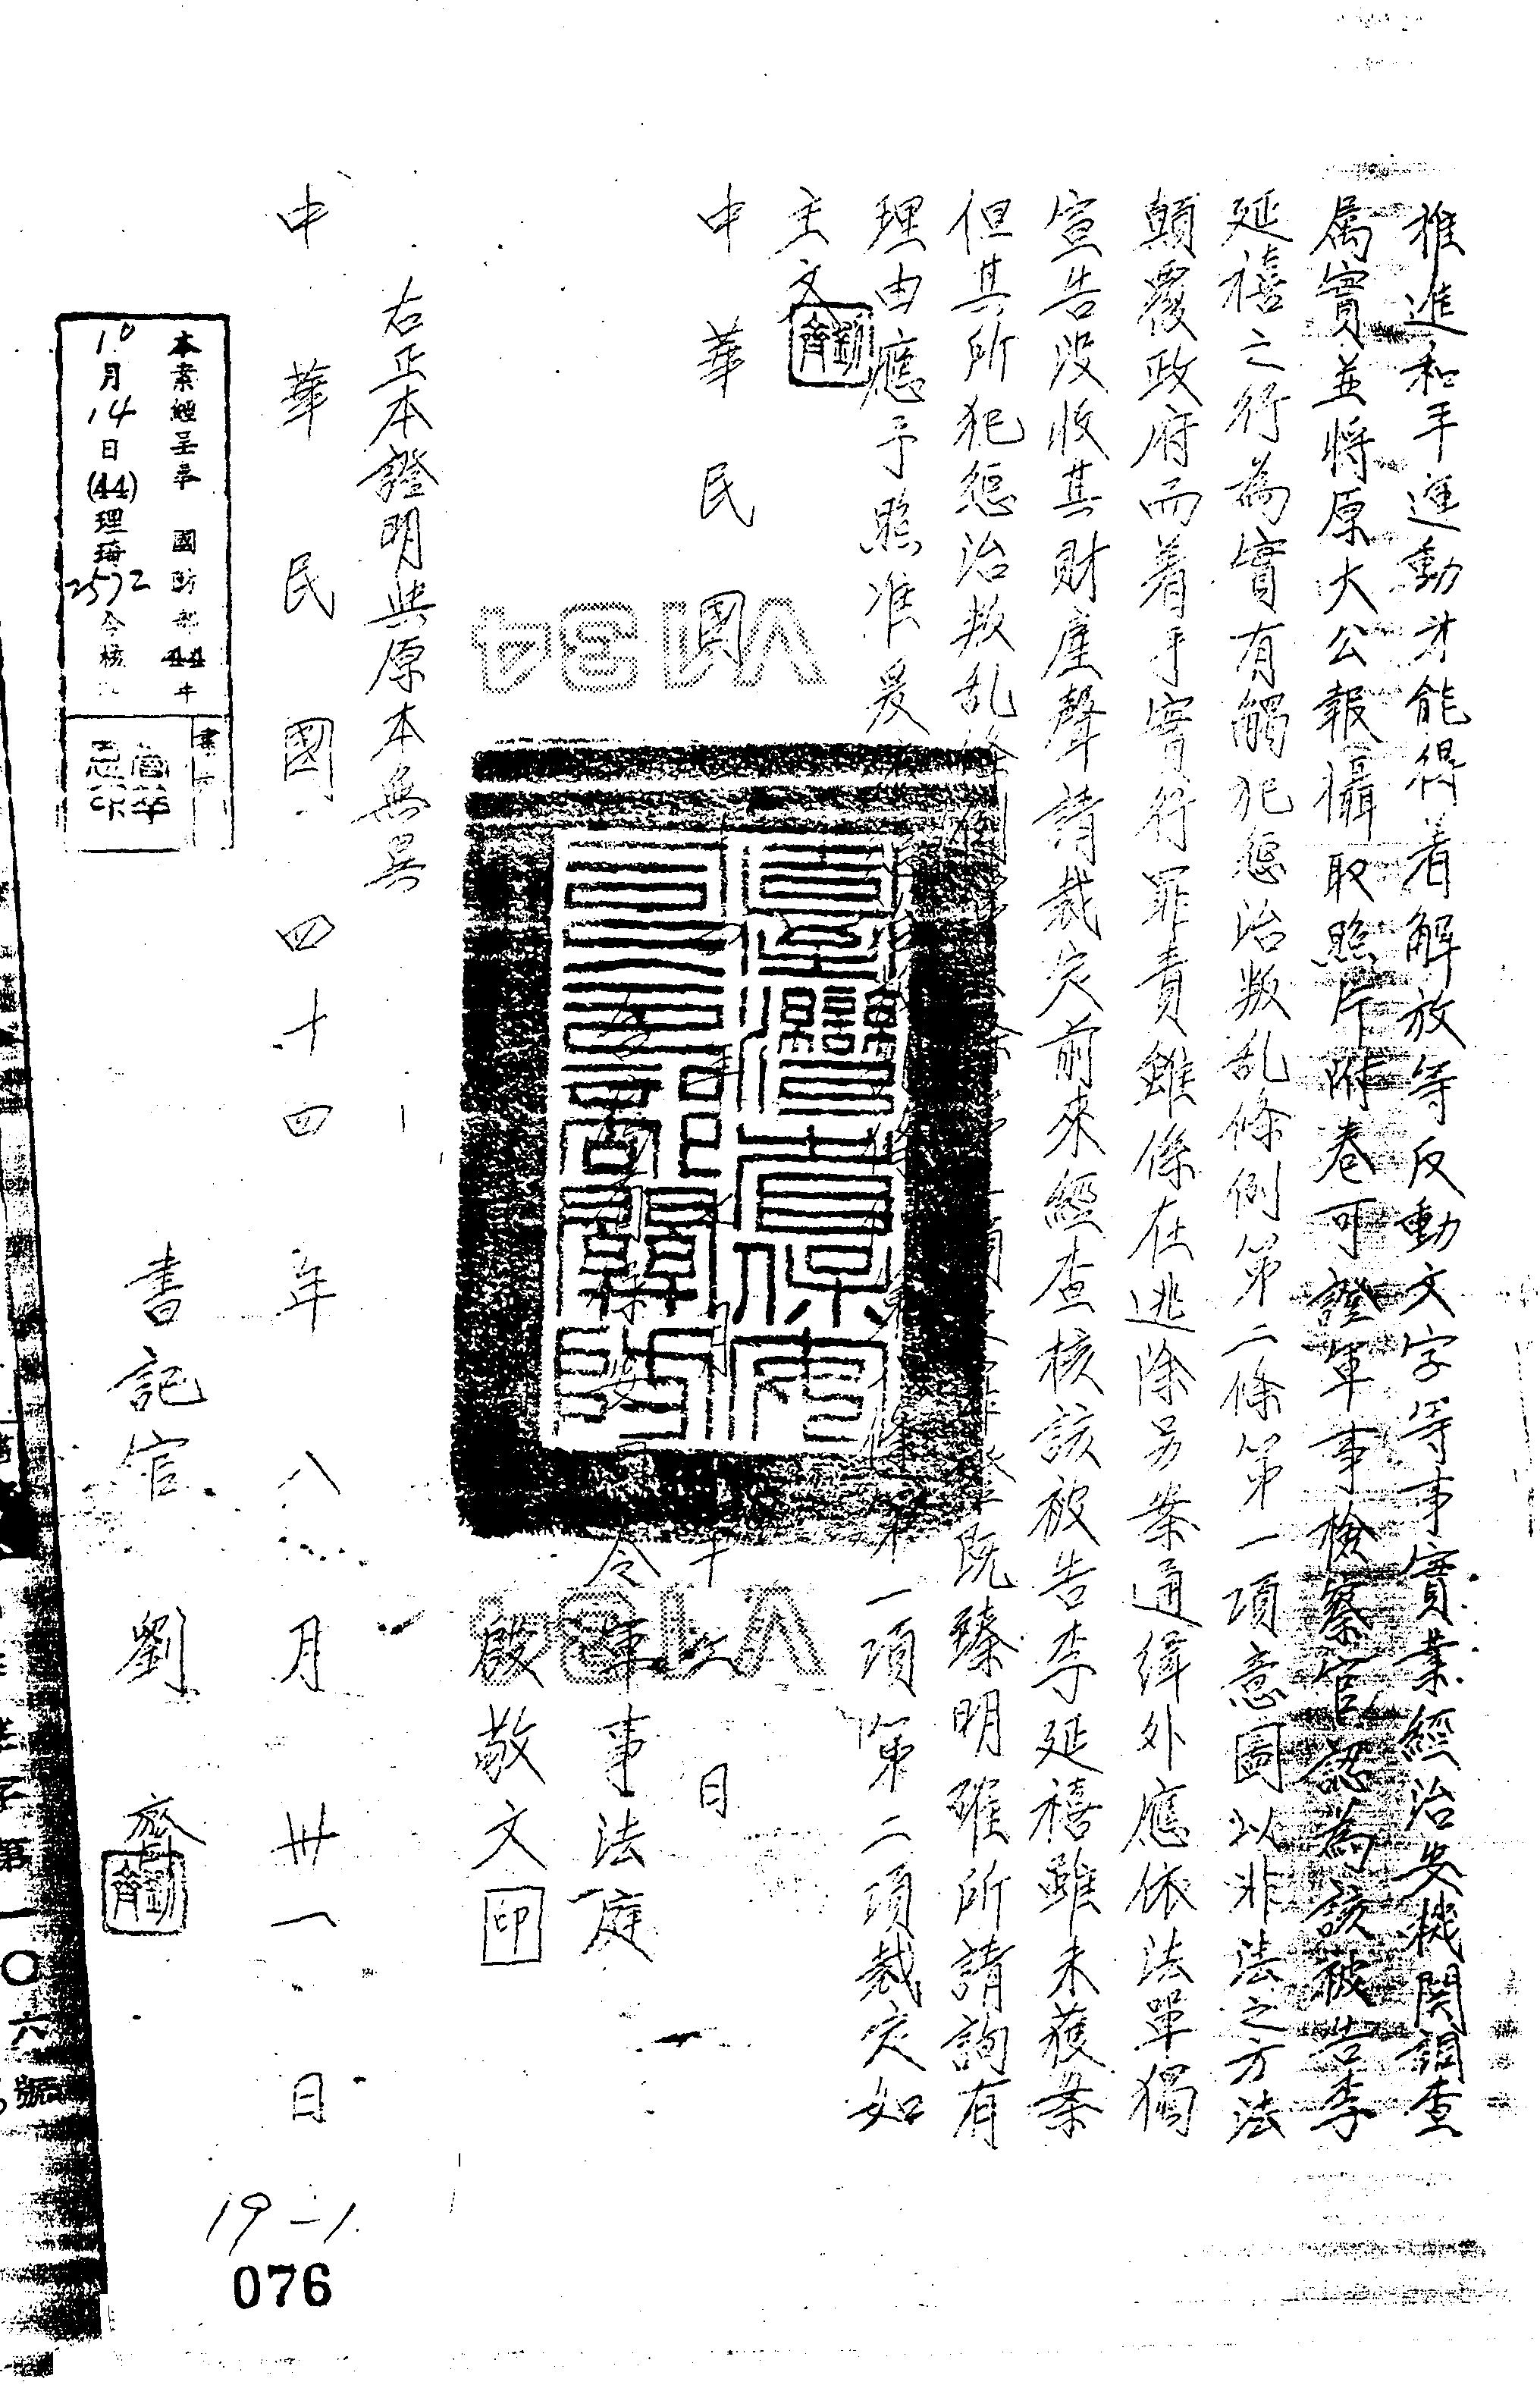 推進和平運動才能得着解放等反動文字等事實業經治安機關調查
屬實並將原大公報攝取照片附卷可證軍事檢察官認為該被告李
延禧之行為實有觸犯懲治叛乱條例第二條第一項意圖以非法之方法
顛覆政府而着手實行罪責雖係在逃除另案通緝外應依法單獨
宣告沒收其財產聲請裁定前來經查核該被告李延禧雖未獲案
但其所犯懲治叛乱條例 既臻明確所請詢有
理由應予照准爰 條第一項第二項裁定如
主文
中華民國 日
令 軍事法庭
殷敬文 印
右正本證明與原本無異
中華民國四十四年八月卅一日
書記官 劉齊
本案經呈奉 國防部44年
10月14日(44)理琦2572令核
076
19-1
第一〇六號
V134
V134